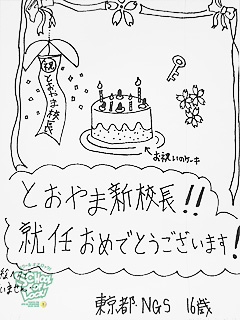 祝
とおやま校長
お祝いのケーキ
とおやま新校長!!
就任おめでとうございます!
いません。
東京都・NGS 16歳